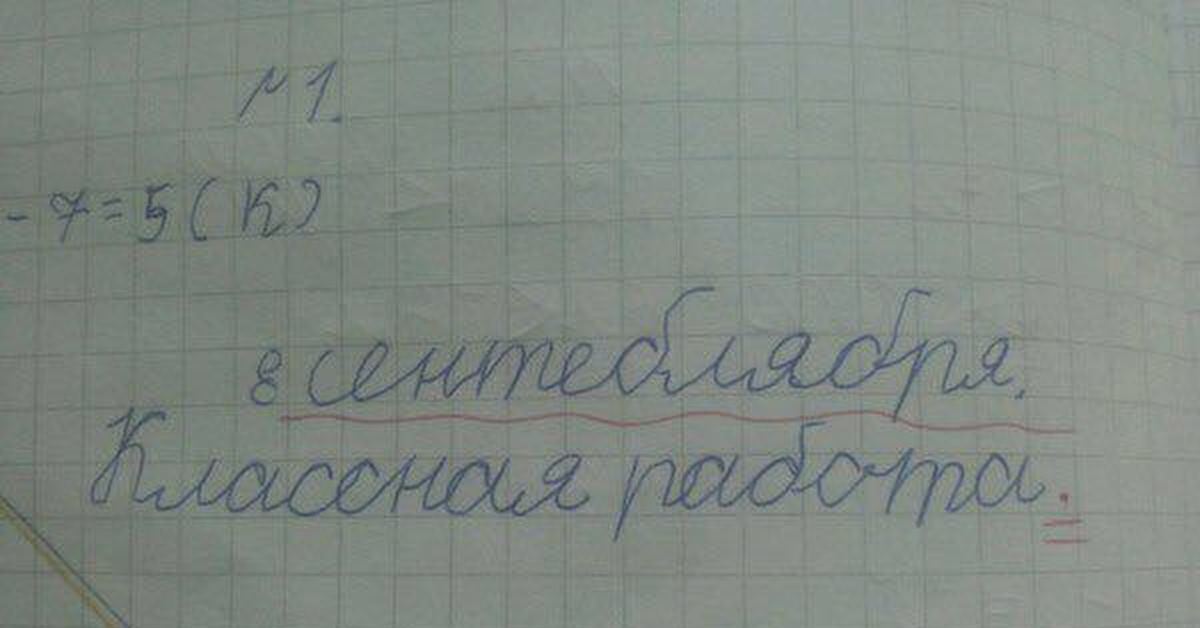 № 1.
- 7 = 5 (К)
8 сентеблября.
Классная работа.